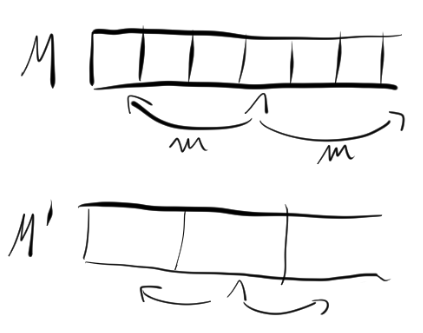 M
m m
M'